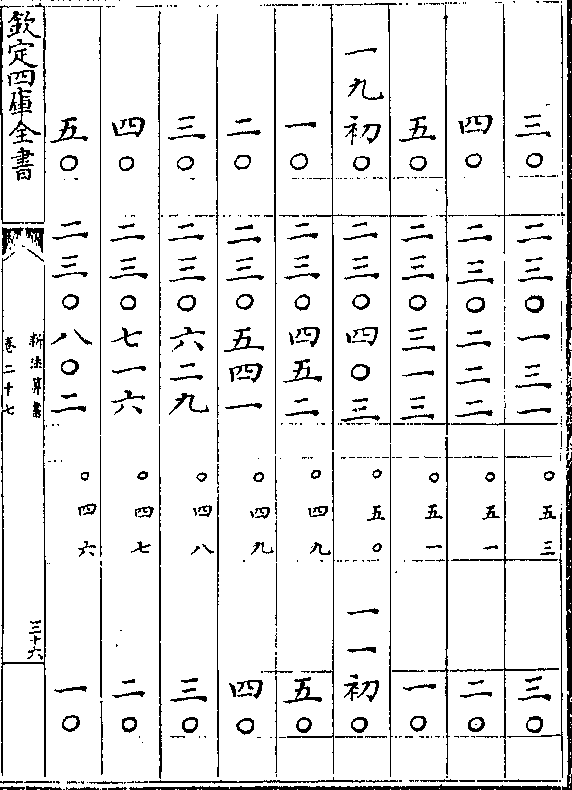 三〇 二三〇一三一 〇五三 三〇
四〇 二三〇二二二 〇五一 二〇
五〇 二三〇三一三 〇五一 一〇
一九初〇 二三〇四〇三 〇五〇 一一初〇
一〇 二三〇四五二 〇四九 五〇
二〇 二三〇五四一 〇四九 四〇
三〇 二三〇六二九 〇四八 三〇
四〇 二三〇七一六 〇四七 二〇
五〇 二三〇八〇二 〇四六 一〇
欽定四庫全書
新法算書
卷二十七
三十六